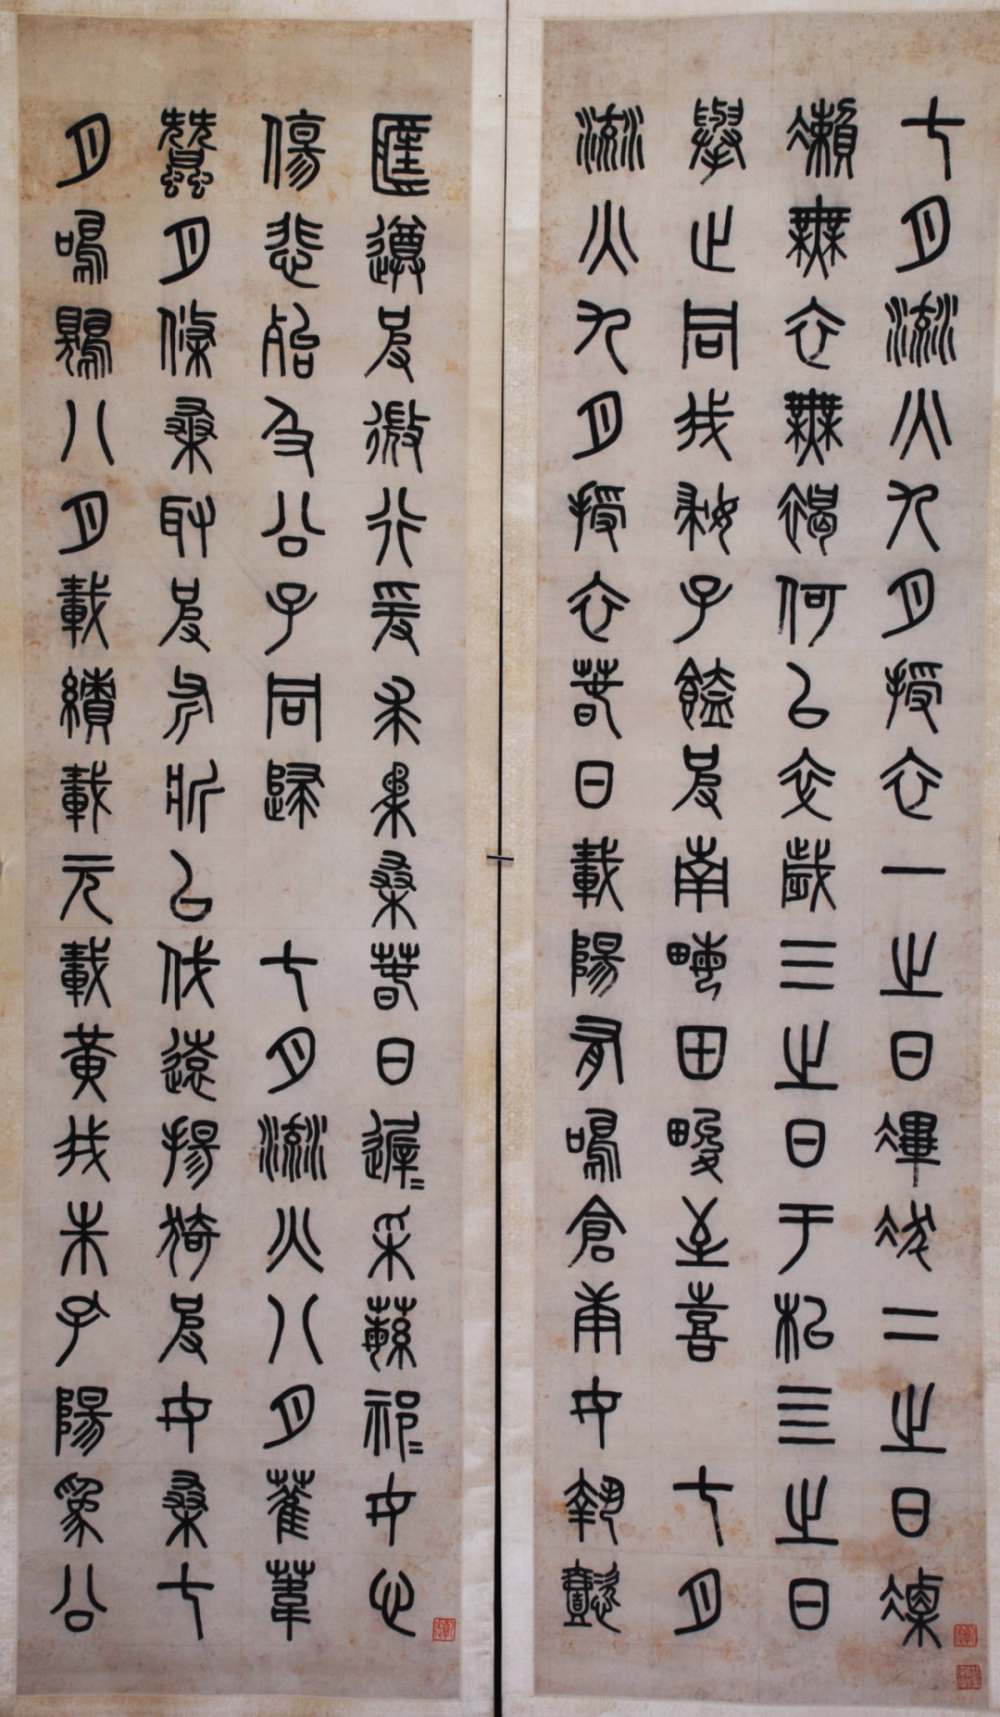 七月流火九月授衣一之日㓖冹二之日凓
無衣無褐何以卒歲三之日于耜亖之日
舉止同我婦子饁彼南畮田畯至喜 七月
流火九月授衣春日載陽有鳴倉庚女執懿
匡遵彼微行爰求柔桑春日遲=采蘩祁=女心
傷悲殆及公子同歸 七月流火八月萑葦
蠶月條桑取彼斧斨以伐遠揚猗彼女桑七
月鳴鵙八月載績載玄載黃我朱孔陽為公